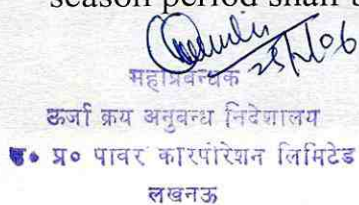 season period shall
25/2/06
महाप्रबन्धक
ऊर्जा क्रय अनुबन्ध निदेशालय
उ० प्र० पावर कारपोरेशन लिमिटेड
लखनऊ